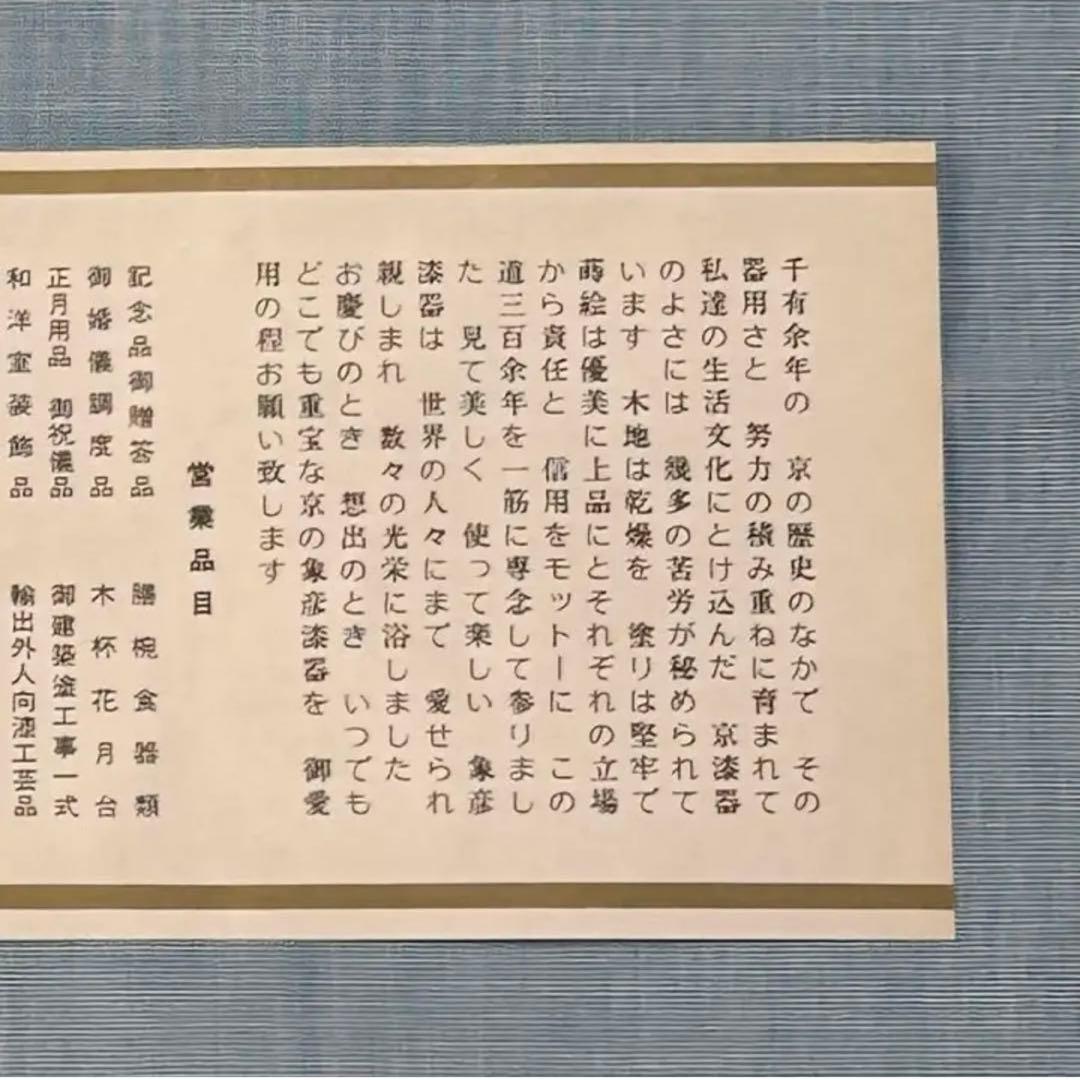 千有余年の　京の歴史のなかで　その
器用さと　努力の積み重ねに育まれて
私達の生活文化にとけ込んだ　京漆器
のよさには　幾多の苦労が秘められて
います　木地は乾燥を　塗りは堅牢で
蒔絵は優美に上品にとそれぞれの立場
から責任と　信用をモットーに　この
道三百余年を一筋に専念して参りまし
た　見て美しく　使って楽しい　象彦
漆器は　世界の人々にまで　愛せられ
親しまれ　数々の光栄に浴しました
お慶びのとき　想出のとき　いつでも
どこでも重宝な京の象彦漆器を　御愛
用の程お願い致します
営業品目
記念品御贈答品　膳椀食器類
御婚儀調度品　木杯花月台
正月用品　御祝儀品　御建築塗工事一式
和洋室装飾品　輸出外人向漆工芸品